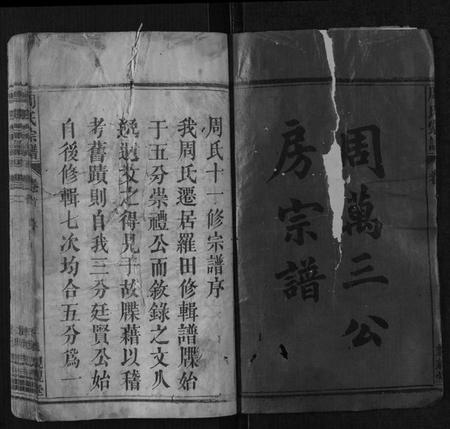 周萬三公
房宗譜
周氏十一修宗譜序
我周氏遷居羅田修輯譜牒始
于五分崇禮公而敘錄之文以
之得見乎故牒藉以稽
考舊蹟則自我三分廷賢公始
自後修輯七次均合五分爲一
周氏宗譜